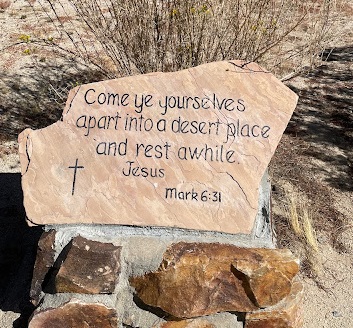 Come ye yourselves
apart into a desert place
and rest awhile
Jesus
Mark 6:31